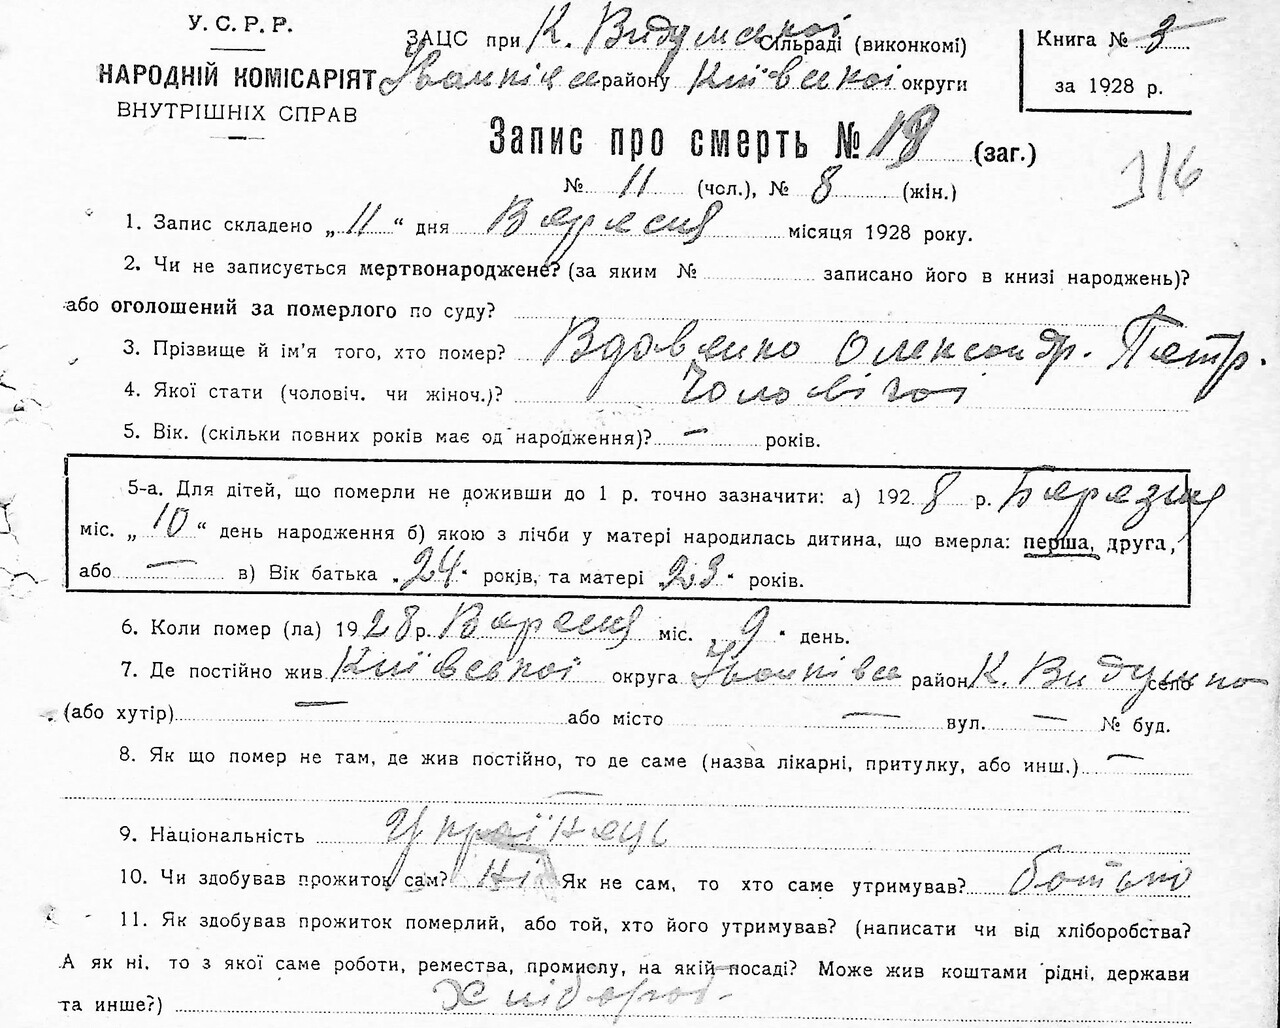 У.С.Р.Р.
НАРОДНІЙ КОМІСАРІЯТ
ВНУТРІШНІХ СПРАВ
ЗАЦС при К. Видумської Сільраді (виконкомі)
району Київської округи
Книга № 3
за 1928 р.
Запис про смерть № 19 (заг.)
316
№ 11 (чол.), № 8 (жін.)
1. Запис складено „11“ дня Вересня місяця 1928 року.
2. Чи не записується мертвонароджене? (за яким № записано його в книзі народжень)?
або оголошений за померлого по суду?
3. Прізвище й ім'я того, хто помер? Вдовенко Олександр. Петр.
4. Якої стати (чоловіч. чи жіноч.)? Чоловічої
5. Вік. (скільки повних років має од народження)? — років.
5-а. Для дітей, що померли не доживши до 1 р. точно зазначити: а) 1928 р. Березня
міс. „10“ день народження б) якою з лічби у матері народилась дитина, що вмерла: перша, друга,
або — в) Вік батька „24“ років, та матері „23“ років.
6. Коли помер (ла) 1928 р. Вересня міс. „9“ день.
7. Де постійно жив Київської округа район К. Видумка село
(або хутір) — або місто — вул. — № буд.
8. Як що помер не там, де жив постійно, то де саме (назва лікарні, притулку, або инш.) —
—
9. Національність Українець
10. Чи здобував прожиток сам? Ні Як не сам, то хто саме утримував? батько
11. Як здобував прожиток померлий, або той, хто його утримував? (написати чи від хліборобства?
А як ні, то з якої саме роботи, ремества, промислу, на якій посаді? Може жив коштами рідні, держави
та инше?) Хлібороб.